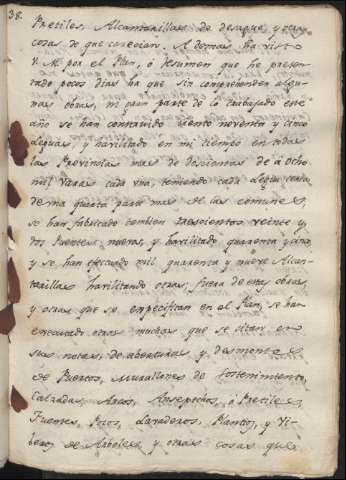 38.
Pretiles, Alcantarillas de desague y otras
cosas de que carecian. Ademas ha visto
V. M. por el Plan, ó resumen que he presen-
tado pocos dias ha que sin comprehender algu-
nas obras, ni gran parte de lo trabajado este
año se han construido ciento noventa y cinco
Leguas, y havilitado en mi tiempo en todas
las Provincias mas de doscientas de á ocho
mil varas cada una, teniendo cada Legua cerca
de una quarta parte mas de las comunes,
se han fabricado tambien trescientos veinte y
dos Puentes nuevos y havilitado quarenta y cinco
y se han efectuado mil quarenta y nueve Alcan-
tarillas havilitando otras; fuera de estas obras,
y otras que se especifican en el Plan, se han
executado otras muchas que se citan en
sus notas, de aberturas y desmontes
de Puertos, Murallones de sostenimiento,
Calzadas, Arcos, Antepechos, ó Pretiles,
Fuentes, Pozos, Lavaderos, Plantíos, y Vi-
beros de Arboles, y otras cosas que